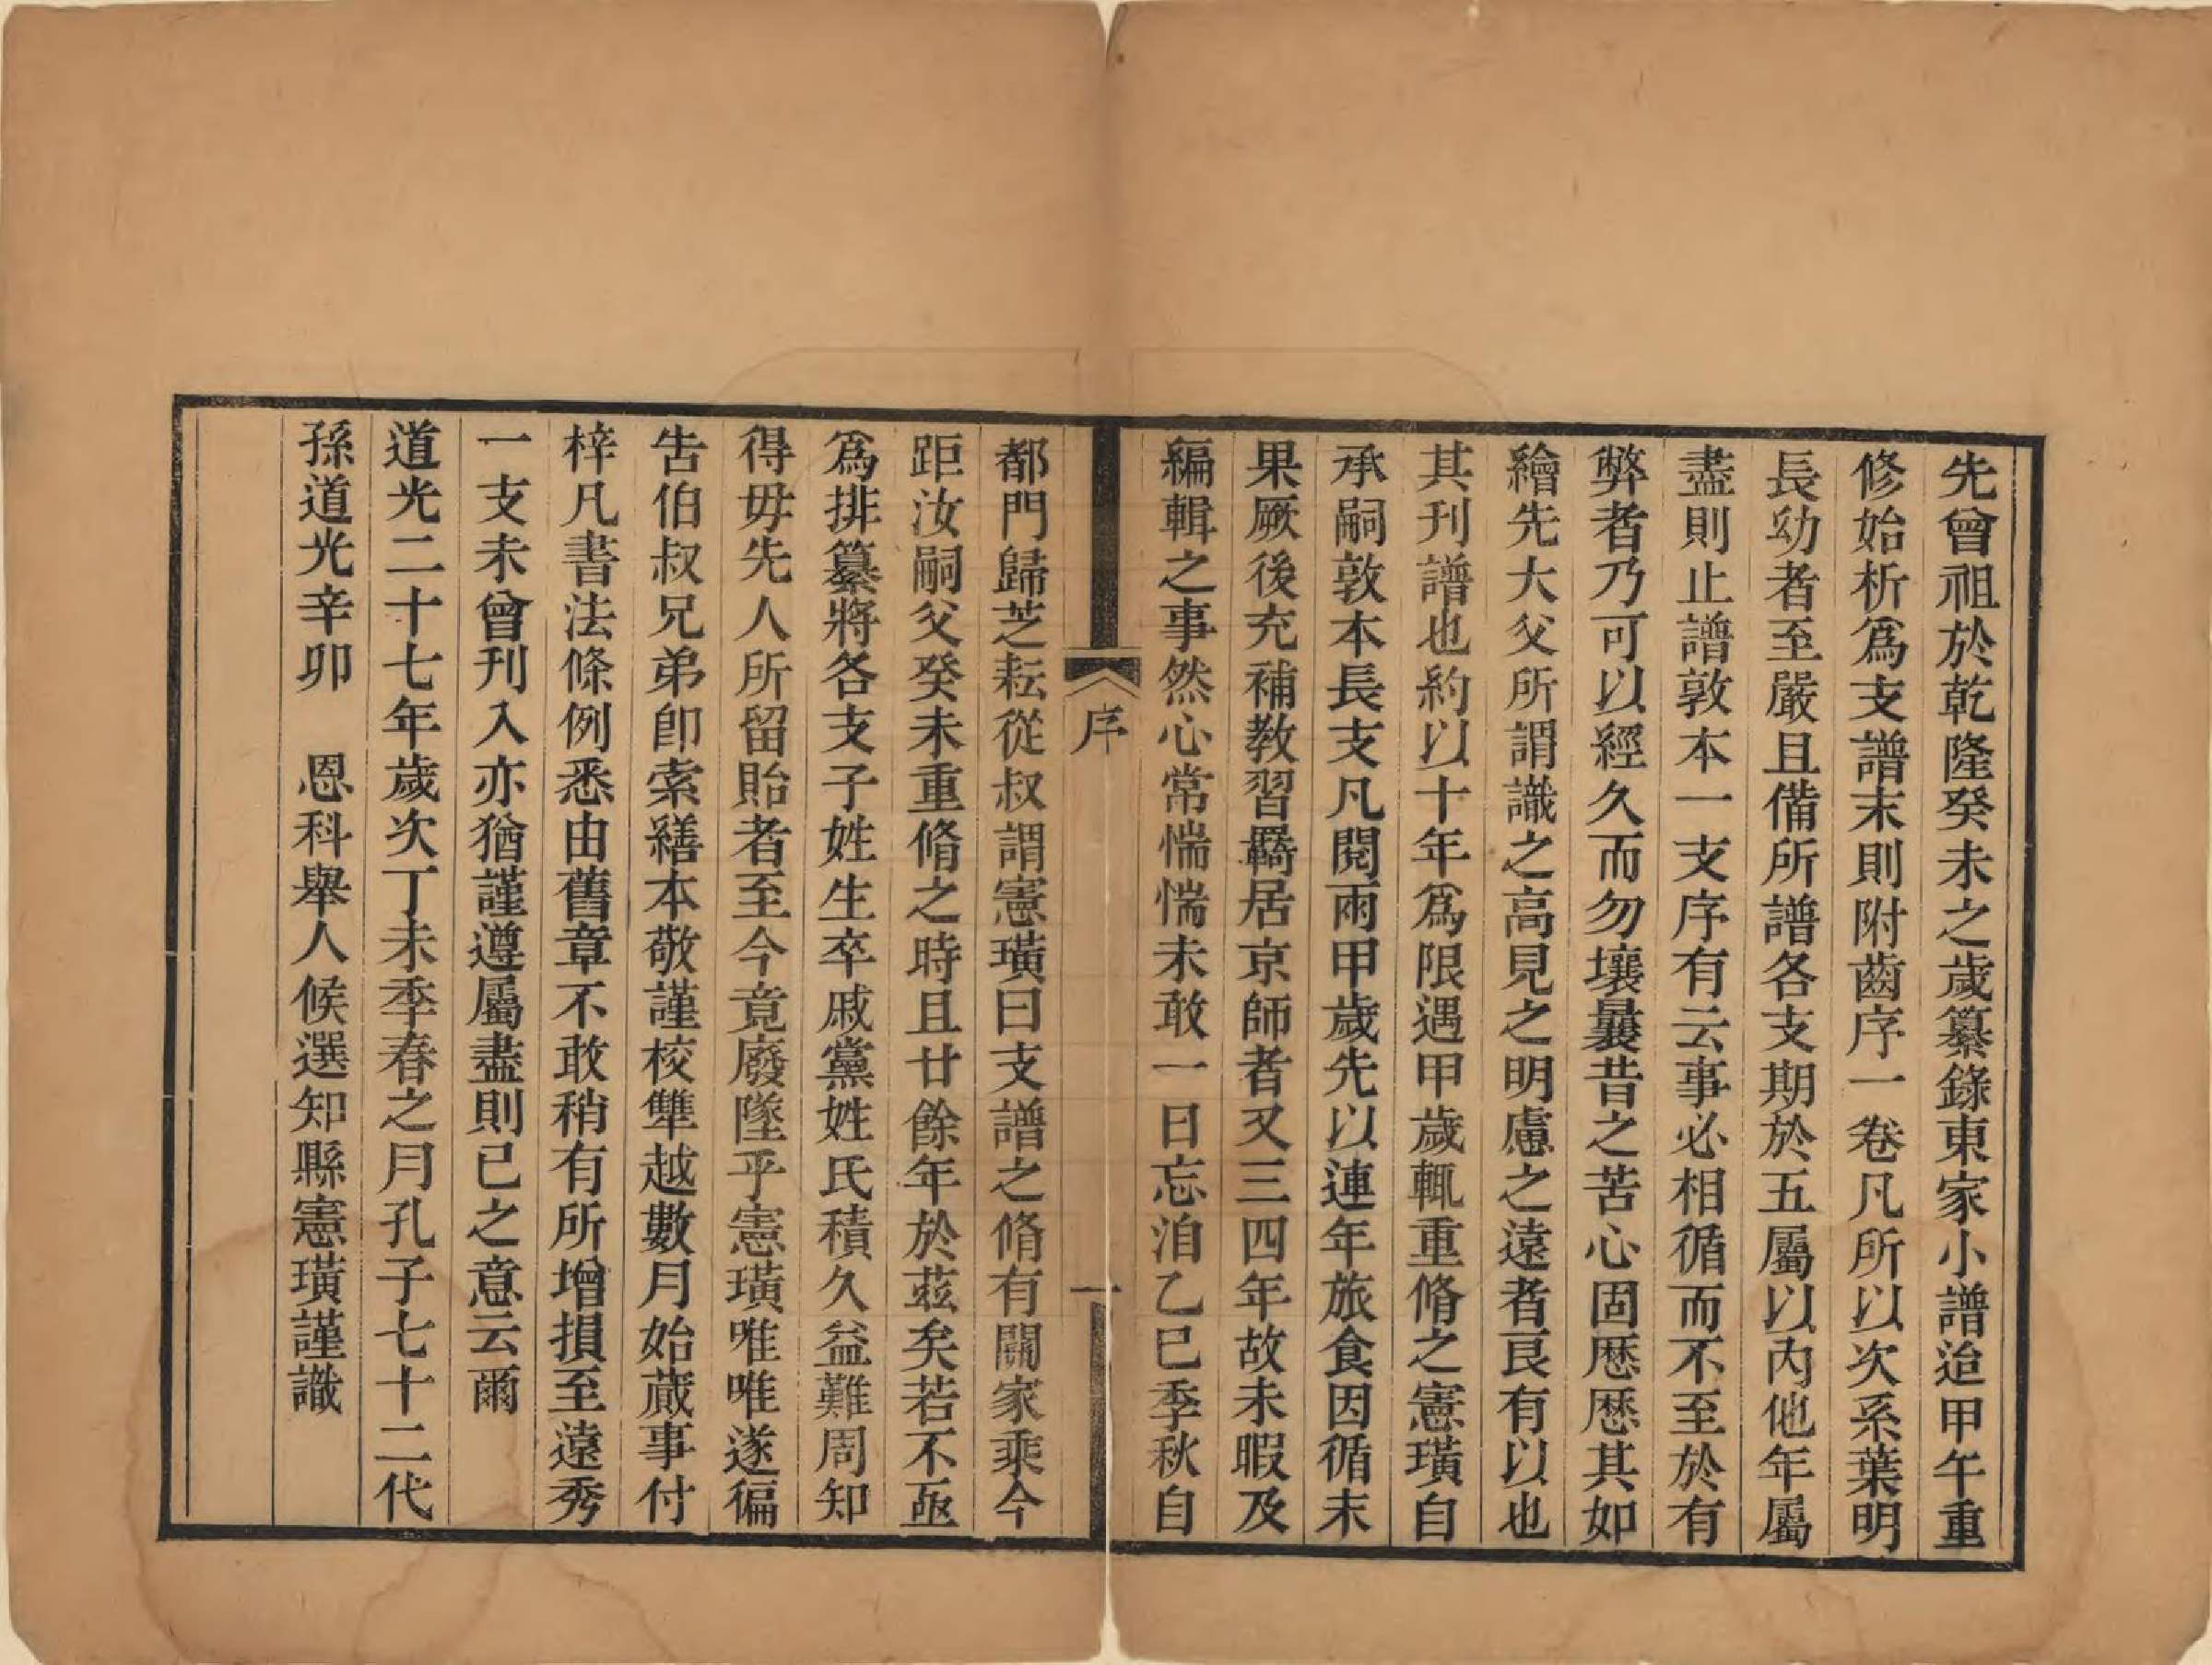 先曾祖於乾隆癸未之歲纂錄東家小譜迨甲午重
修始析爲支譜末則附齒序一卷凡所以次系葉明
長幼者至嚴且備所譜各支期於五屬以內他年屬
盡則止譜敦本一支序有云事必相循而不至於有
弊者乃可以經久而勿壞曩昔之苦心固歷歷其如
繪先大父所謂識之高見之明慮之遠者良有以也
其刊譜也約以十年爲限遇甲歲輒重脩之憲璜自
承嗣敦本長支凡閱兩甲歲先以連年旅食因循未
果厥後充補教習羈居京師者又三四年故未暇及
編輯之事然心常惴惴未敢一日忘洎乙巳季秋自
序
一
都門歸芝耘從叔謂憲璜曰支譜之脩有關家乘今
距汝嗣父癸未重脩之時且廿餘年於茲矣若不亟
爲排纂將各支子姓生卒戚黨姓氏積久益難周知
得毋先人所留貽者至今竟廢墜乎憲璜唯唯遂徧
告伯叔兄弟卽索繕本敬謹校讐越數月始蕆事付
梓凡書法條例悉由舊章不敢稍有所增損至遠秀
一支未曾刊入亦猶謹遵屬盡則已之意云爾
道光二十七年歲次丁未季春之月孔子七十二代
孫道光辛卯　恩科舉人候選知縣憲璜謹識